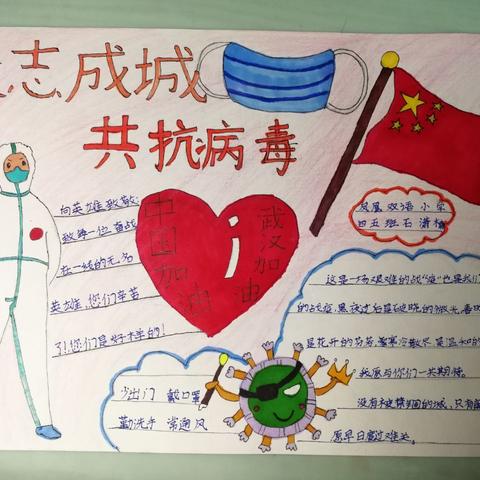 志成城
共抗病毒
凤凰双语小学
四五班石潇
向英雄致敬
致每一位奋战
在一线的无名
英雄,您们辛苦
了!您们是好样的!
中国加油
武汉加油
这是一场艰难的战"疫"也是我们
的战疫.黑夜过后是破晓的微光,春
是花开的芬芳.寒冷散尽是温和的
我愿与你们一共期待.
没有被禁锢的城,只有
愿早日度过难关.
少出门 戴口罩
勤洗手 常通风